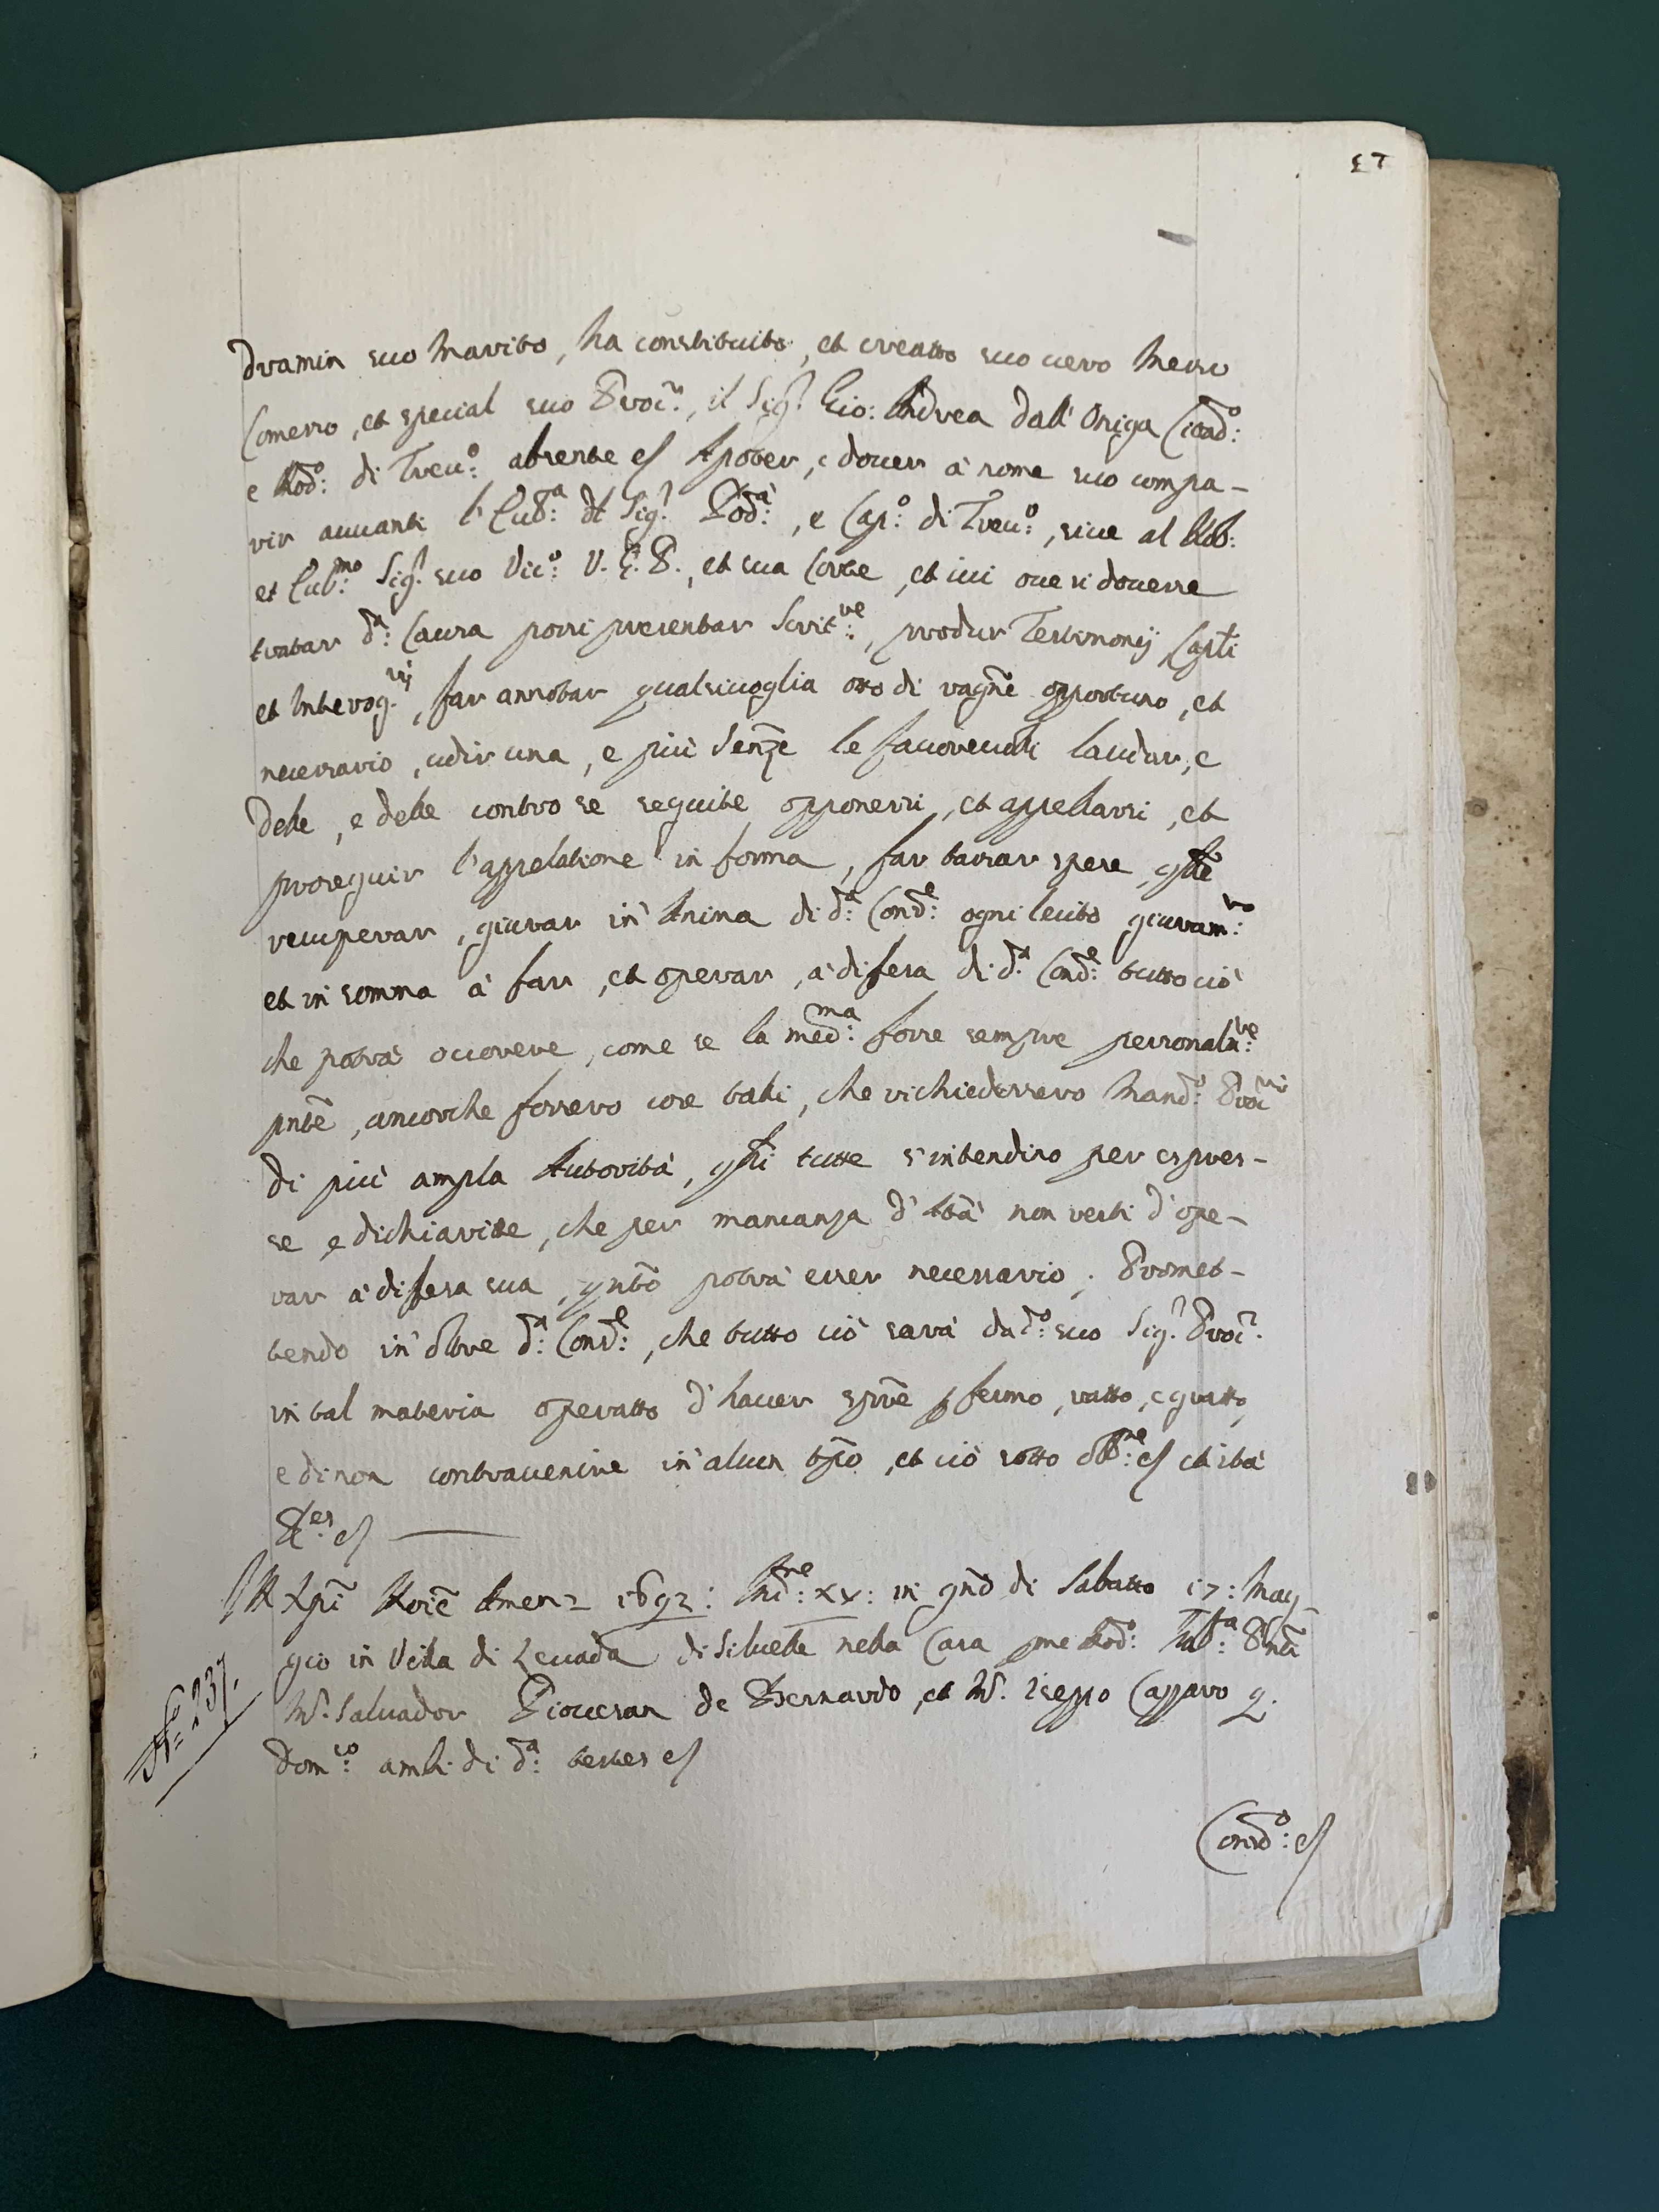 57
Dramin suo Marito, ha constituito, et creatto suo vero Messo
Comesso, et special suo Proc.r, il Sig.r Gio: Andrea dall'Oniga Citad:o
e Nod:o di Trev:o absente etc A poter, e dover à nome suo compa-
rir avvanti l'Ecc:a del Sig.r Pod:à, e Cap:o di Trev:o, sive al Nob:
et Ecc:mo Sig.r suo Vic:o V. G. P., et sua Corte, et ivi ove si dovesse
tratar d:a Causa possi presentar Scrit:re, produr Testimonij, Cap:li
et Interog:rij, far annotar qualsivoglia atto di ragne opportuno, et
necessario, udir una, e più Senze le favorevoli laudar, e
delle, e delle contro se seguite opponersi, et appellarsi, et
proseguir l'appelatione in forma, far tassar spese, qlle
recuperar, giurar in Anima di d:a Cond:e ogni lecito giuram:to
et in somma à far, et operar, à difesa di d:a Cond:e tutto ciò
che potrà occorere, come se la med:ma fosse sempre personalm:te
pnte, ancorche fossero cose tali, che richiedessero Mand:o Proc:rio
di più ampla Autorità, qsti tutte s'intendino per espres-
se e dichiaritte, che per mancanza d'Attà non resti d'ope-
rar à difesa sua, qnto potrà esser necessario; Promet-
tendo in oltre d:a Cond:e, che tutto ciò sarà da d:o suo Sig.r Proc.r
in tal materia operatto d'haver sempre p fermo, ratto, e gratto,
e di non contravenire in alcun tpo, et ciò sotto obb:ne etc et ità
etc
In Xpi Noie Amen 1692: Ind:ne XV: in gno di Sabatto 17: Mag-
gio in Villa di Levada di Silvelle nella Casa
M.r Salvador Piovesan de Bernardo, et M.r Iseppo Capparo q.
Dom:co ambi di d:a testes etc
N.o 237.
Cond:o etc